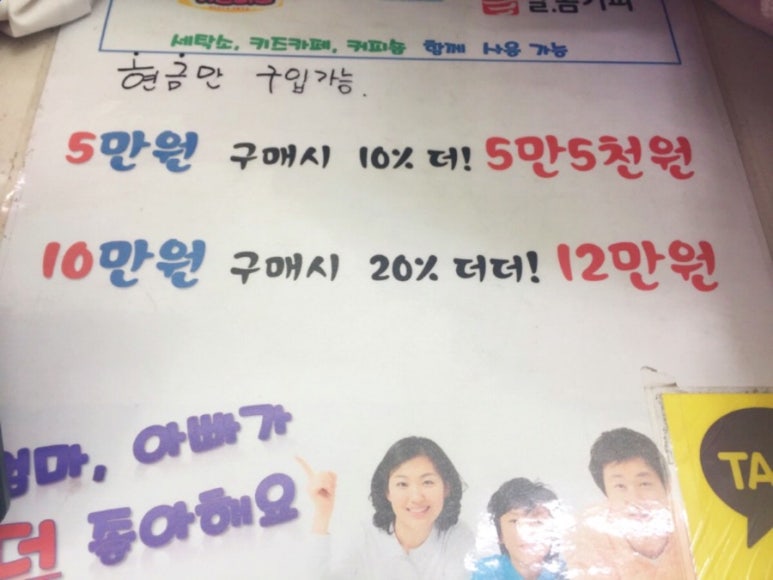 세탁소, 키즈카페, 커피숍 함께 사용 가능
현금만 구입가능.
5만원 구매시 10% 더! 5만5천원
10만원 구매시 20% 더더! 12만원
엄마, 아빠가
더 좋아해요
TA